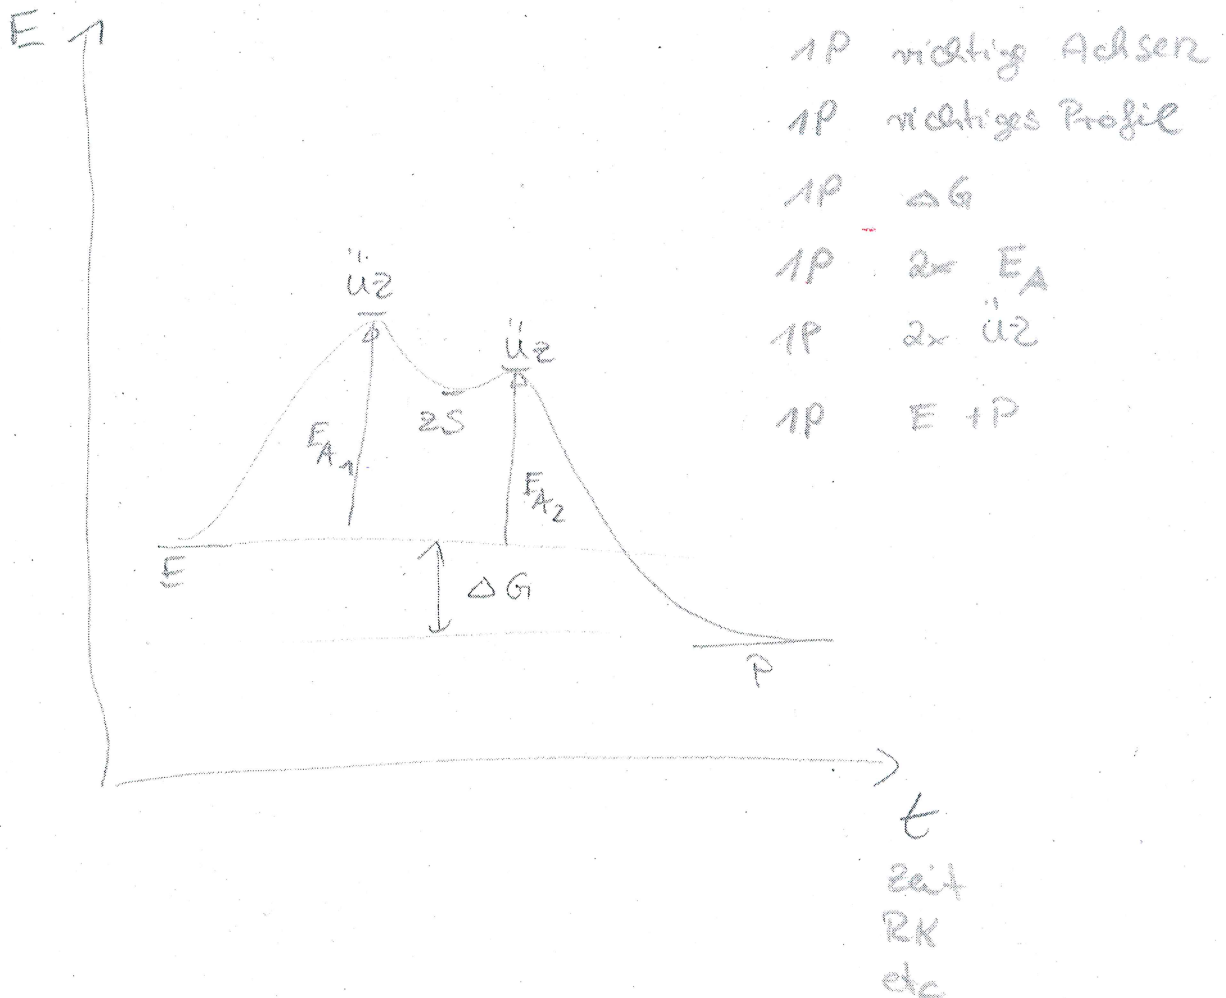 E
1P richtige Achsen
1P richtiges Profil
1P ΔG
1P 2x EA
1P 2x ÜZ
1P E + P
ÜZ
ÜZ
ZS
EA1
EA2
E
ΔG
P
t
Zeit
RK
etc